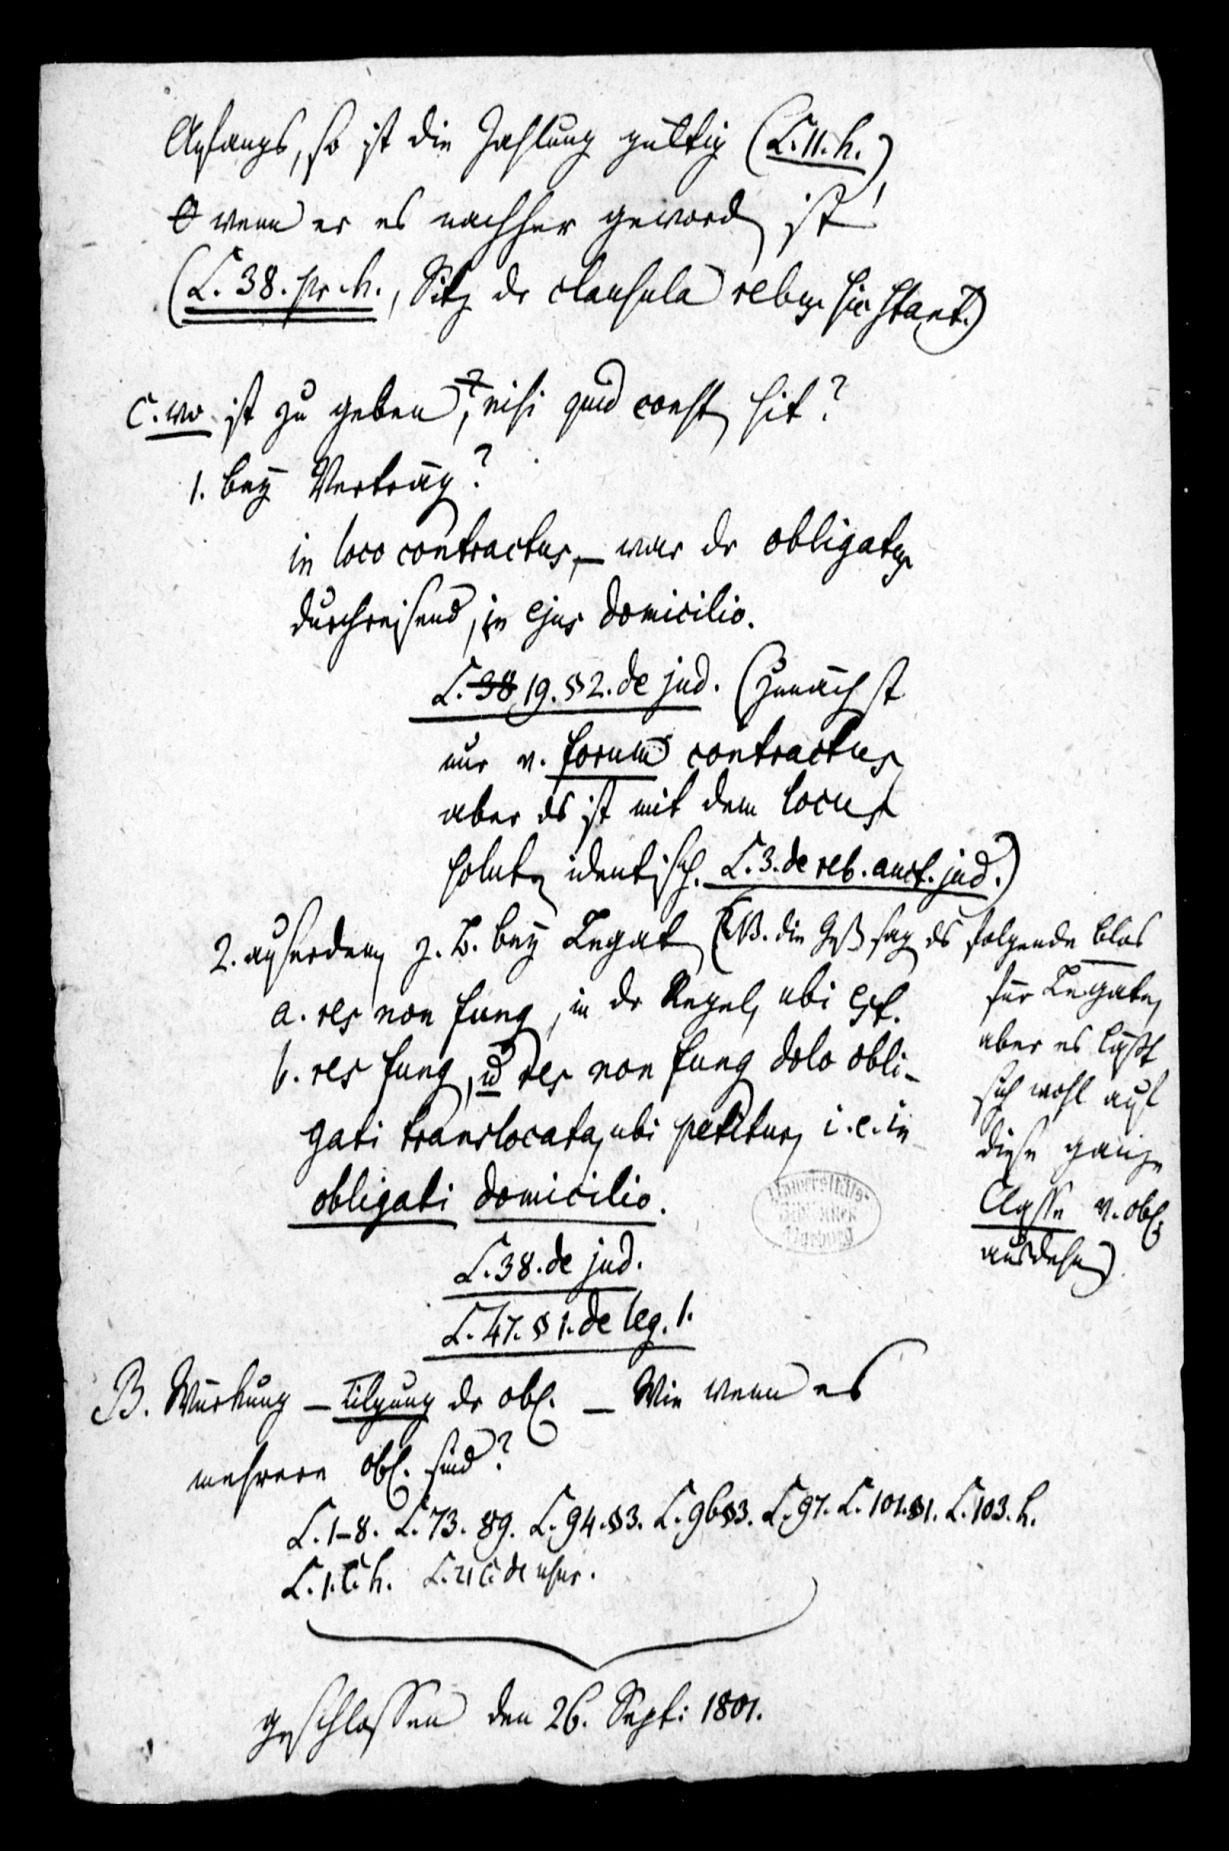 Anfangs, so ist die Zahlung gültig (L. 11. h.)
wenn er es nachher geword ist
(L. 38. pr. h., Sitz dr clausula rebus sic stant.)
C. wo ist zu geben, nisi quid const sit?
1. bey Verträg?
in loco contractus, – war dr obligatus
durchreisend, in ejus domicilio.
L. 38 19. §2. de jud. (zunächst
nur v. forum contractus
aber ds ist mit dem locus
solut identisch. L. 3. de reb. auct. jud.)
2. außerdem z. B. bey Legat (NB. die Ges sag ds folgende blos
für Legate,
aber es läßt
sich wohl auf
diese ganze
Classe v. obl.
ausdehn)
a. res non fung, in dr Regel, ubi est.
b. res fung, u res non fung dolo obli-
gati translocata, ubi petitur, i. e. in
obligati domicilio.
Universitäts
Bibliothek
Marburg
L. 38. de jud.
L. 47. § 1. de leg. 1.
B. Würkung – Tilgung dr obl. – Wie wenn es
mehrere obl. sind?
L. 1–8. L. 73. 89. L. 94. §3. L. 96 §3. L. 97. L. 101. §1. L. 103. h.
L. 1. C. h. L. 21 C. de usur.
geschlossen den 26. Sept: 1801.